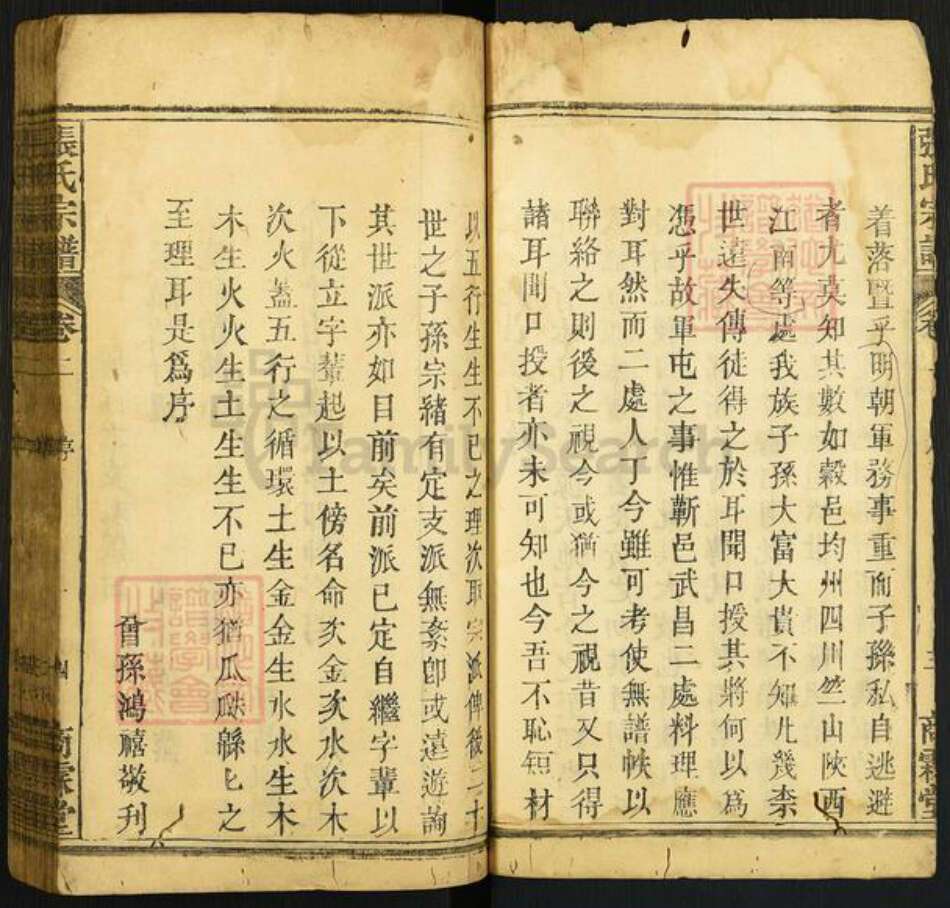 着落暨乎明朝軍務事重而子孫私自逃避
者尤莫知其數如榖邑均州四川竺山陜西
江南等處我族子孫大富大貴不知凡幾柰
世遠失傳徒得之於耳聞口授其將何以為
憑乎故軍屯之事惟蘄邑武昌二處料理應
對耳然而二處人丁今雖可考使無譜帙以
聯絡之則後之視今或猶今之視昔又只得
諸耳聞口授者亦未可知也今吾不恥短材
以五行生生不已之理次取宗派俾後二十
世之子孫宗緒有定支派無紊卽或遠遊詢
其世派亦如目前矣前派已定自繼字輩以
下從立字輩起以土傍名命次金次水次木
次火蓋五行之循環土生金金生水水生木
木生火火生土生生不已亦猶瓜瓞緜乜之
至理耳是爲序
曾孫鴻禧敬刋
張氏宗譜
卷
商霖堂
張氏宗譜
卷一
序
十四
商霖堂
FamilySearch